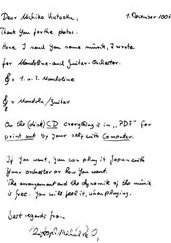 Dear Michiko Kataoka, 1. December 2005
Thank you for the photos.
Here I send you some music, I wrote
for Mandoline- and Guitar-Orchester.
= 1. u. 2. Mandoline
= Mandola/Guitar
On the (disk) CD everything is in "PDF" for
print out by your self with Computer.
If you want, you can play it Japan with
your orchester or how you want.
The arrangement and the dynamik of the music
is free. You will feel it, when playing.
best regards from